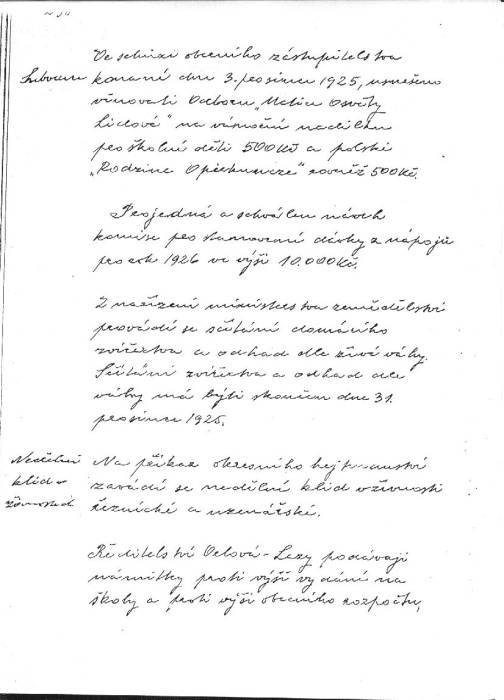 Ve schůzi obecního zastupitelstva
konané dne 3. prosince 1925, usneseno
věnovati Odboru „Matice Osvěty
Lidové" na vánoční nadílku
pro školní děti 500Kč a polské
„Rodzine Opiekuncze" rovněž 500Kč.
Projedná a schválen návrh
komise pro stanovení dávky z nápojů
pro rok 1926 ve výši 10.000Kč.
Z nařízení ministerstva zemědělství
provádí se sčítání domácího
zvířectva a odhad dle živé váhy.
Sčítání zvířectva a odhad dle
váhy má býti skončen dne 31.
prosince 1925.
Nedělní
klid v
Na příkaz okresního hejtmanství
zavádí se nedělní klid v živnosti
řeznické a uzenářské.
Ředitelství Orlová-Lazy podávají
námitky proti výši vydání na
školy a proti výši obecního rozpočtu,